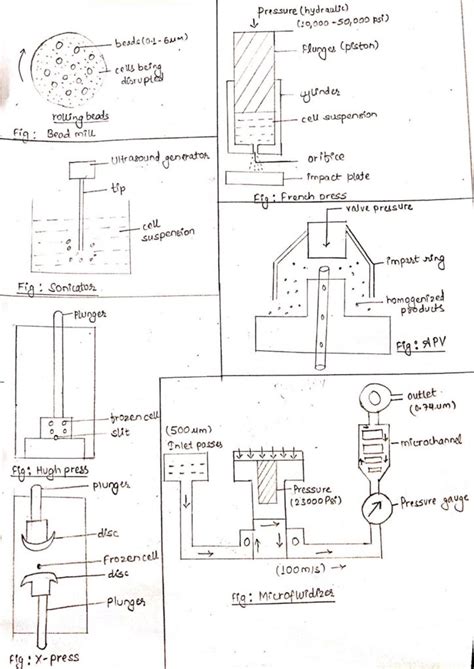 beads(0.1-6um)
cells being
disrupted
rolling beads
Fig: Bead mill
Pressure (hydraulic)
(10,000 - 50,000 psi)
Plunges (piston)
cylinder
cell suspension
orifice
impact plate
Fig: French press
ultrasound generator
tip
cell
suspension
Fig: Sonicator
valve pressure
impart ring
homogenized
products
Fig: APV
Plunger
frozen cell
slit
Fig: Hugh press
plunger
disc
Frozen cell
disc
Plunger
Fig: X-press
(500um)
Inlet passes
Pressure
(23000 Psi)
(100m/s)
outlet
(0.74um)
microchannel
Pressure gauge
Fig: Microfluidizer